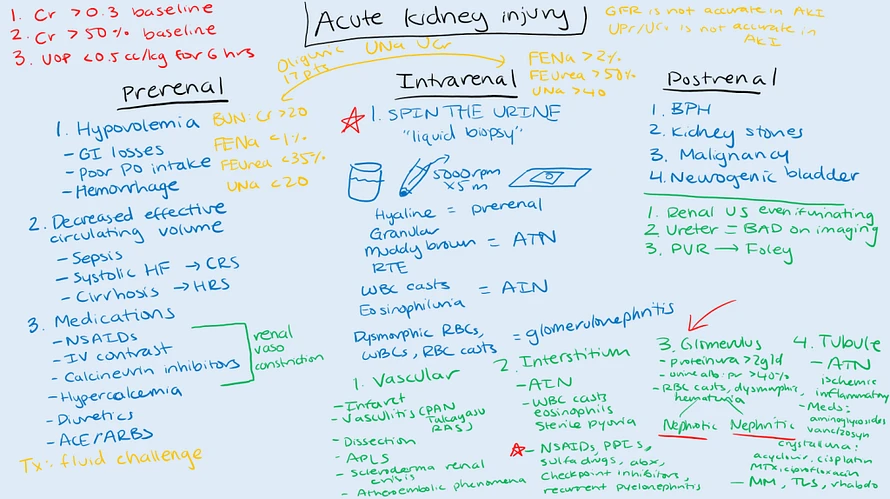 1. Cr > 0.3 baseline
2. Cr > 50% baseline
3. UOP < 0.5 cc/kg for 6 hrs
Acute kidney injury
GFR is not accurate in AKI
UPr/UCr is not accurate in
AKI
Oliguric UNa UCr
17 pts
FENa > 2%
FEUrea > 50%
UNa > 40
Prerenal
1. Hypovolemia
- GI losses
- Poor PO intake
- Hemorrhage
BUN: Cr > 20
FENa < 1%
FEUrea < 35%
UNa < 20
2. Decreased effective
circulating volume
- Sepsis
- Systolic HF → CRS
- Cirrhosis → HRS
3. Medications
- NSAIDs
- IV contrast
- Calcineurin inhibitors
renal
vaso
constriction
- Hypercalcemia
- Diuretics
- ACE/ARBs
Tx: fluid challenge
Intrarenal
1. SPIN THE URINE
"liquid biopsy"
5000rpm
x5m
Hyaline = prerenal
Granular
Muddy brown = ATN
RTE
WBC casts = AIN
Eosinophiluria
Dysmorphic RBCs, = glomerulonephritis
WBCs, RBC casts
1. Vascular
- Infarct
- Vasculitis (PAN
Takayasu
RAS)
- Dissection
- APLS
- Scleroderma renal
crisis
- Atheroembolic phenomena
2. Interstitium
- AIN
- WBC casts
eosinophils
Sterile pyuria
- NSAIDs, PPIs,
sulfa drugs, abx,
Checkpoint inhibitors,
recurrent pyelonephritis
3. Glomerulus
- proteinuria > 2g/d
- urine alb:pr > 40%
- RBC casts, dysmorphic,
hematuria
Nephrotic Nephritic
4. Tubule
- ATN
ischemic
inflammatory
- Meds:
aminoglycosides
vanc/zosyn
crystalluria:
acyclovir, cisplatin
MTX, ciprofloxacin
- MM, TLS, rhabdo
Postrenal
1. BPH
2. Kidney stones
3. Malignancy
4. Neurogenic bladder
1. Renal US even if urinating
2 Ureter = BAD on imaging
3. PVR → Foley